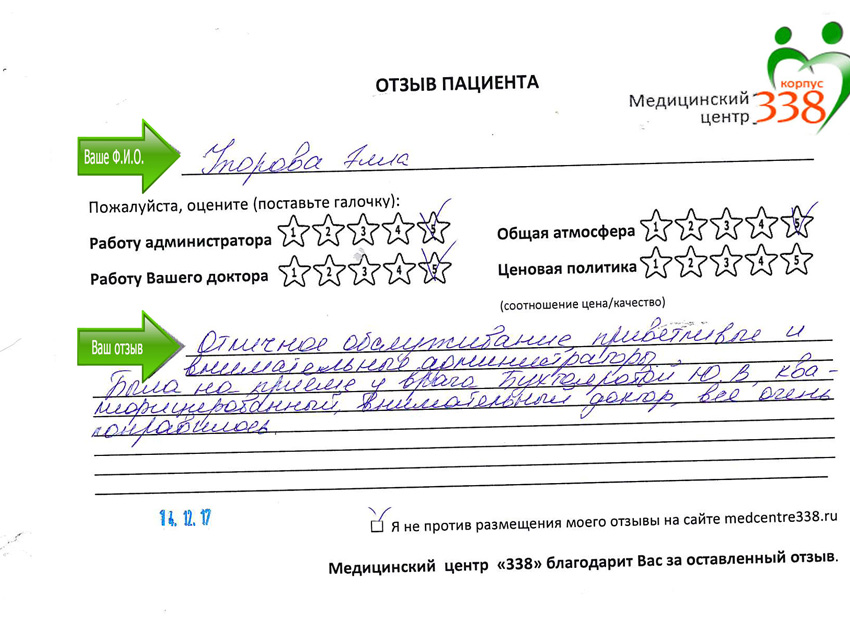 ОТЗЫВ ПАЦИЕНТА
Медицинский центр
корпус 338
Ваше Ф.И.О.
Элла
Пожалуйста, оцените (поставьте галочку):
Работу администратора 1 2 3 4 5
Общая атмосфера 1 2 3 4 5
Работу Вашего доктора 1 2 3 4 5
Ценовая политика 1 2 3 4 5
(соотношение цена/качество)
Ваш отзыв
Отличное обслуживание, приветливые и
внимательные администраторы.
Была на приёме у врача Бухтояровой Ю В, ква-
лифицированный, внимательный доктор, всё очень
понравилось.
14.12.17
Я не против размещения моего отзывы на сайте medcentre338.ru
Медицинский центр «338» благодарит Вас за оставленный отзыв.